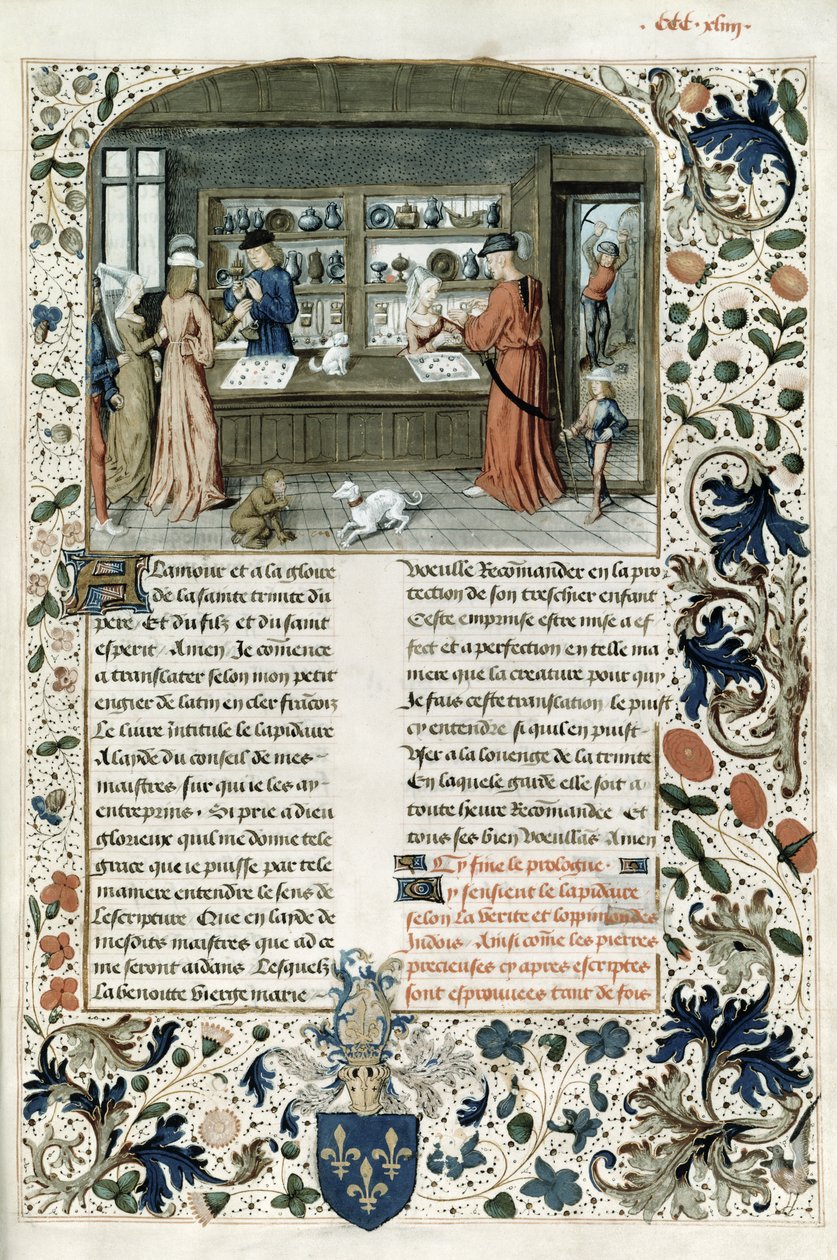 CCC. xliiij.
A Lamour et a la gloire
de la sainte trinite du
pere / Et du filz et du saint
esperit / Amen / Je commence
a translater selon mon petit
engier de latin en cler francoiz
Le livre Intitule le lapidaire
A layde du conseil de mes
maistres sur qui ie les ay
entreprins . Si prie a dieu
glorieux quil me donne tele
grace que ie puisse par tele
maniere entendre le sens de
Lescripture Que en layde de
mesdits maistres que ad ce
me seront aidans / Lesquelz
La benoitte vierge marie
Voeulle Recomander en la pro
tection de son treschier enfant
Ceste emprinse estre mise a ef
fect et a perfection en telle ma
niere que la creature pour quy
Je fais ceste translation le puist
cy entendre si quil en puist
Vser a la louenge de la trinite
En laquele garde elle soit a
toute heure Recomandee Et
tous ses bien Voeullās Amen
Cy fine le prologue .
Cy sensient le lapidaire
selon La verite et loppinion des
Indois / Ainsi come les pierres
precieuses cy apres escriptes
sont esprouuees tant de fois